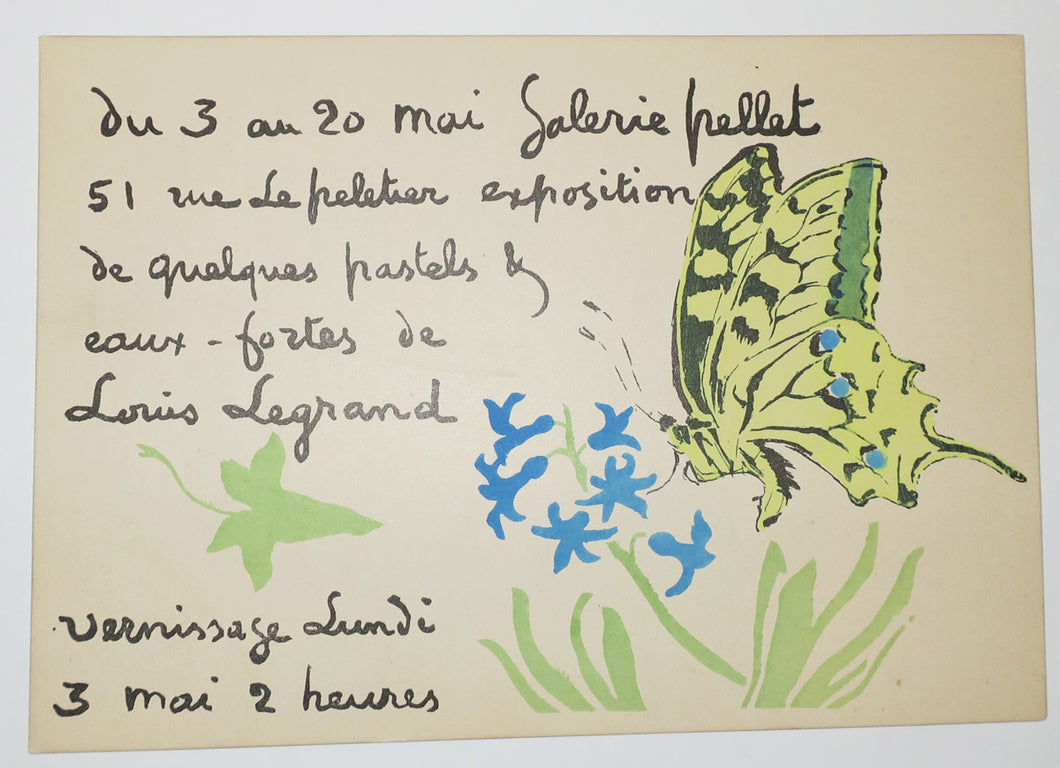 du 3 au 20 mai Galerie pellet
51 rue Le peletier exposition
de quelques pastels &
eaux-fortes de
Louis Legrand
vernissage Lundi
3 mai 2 heures